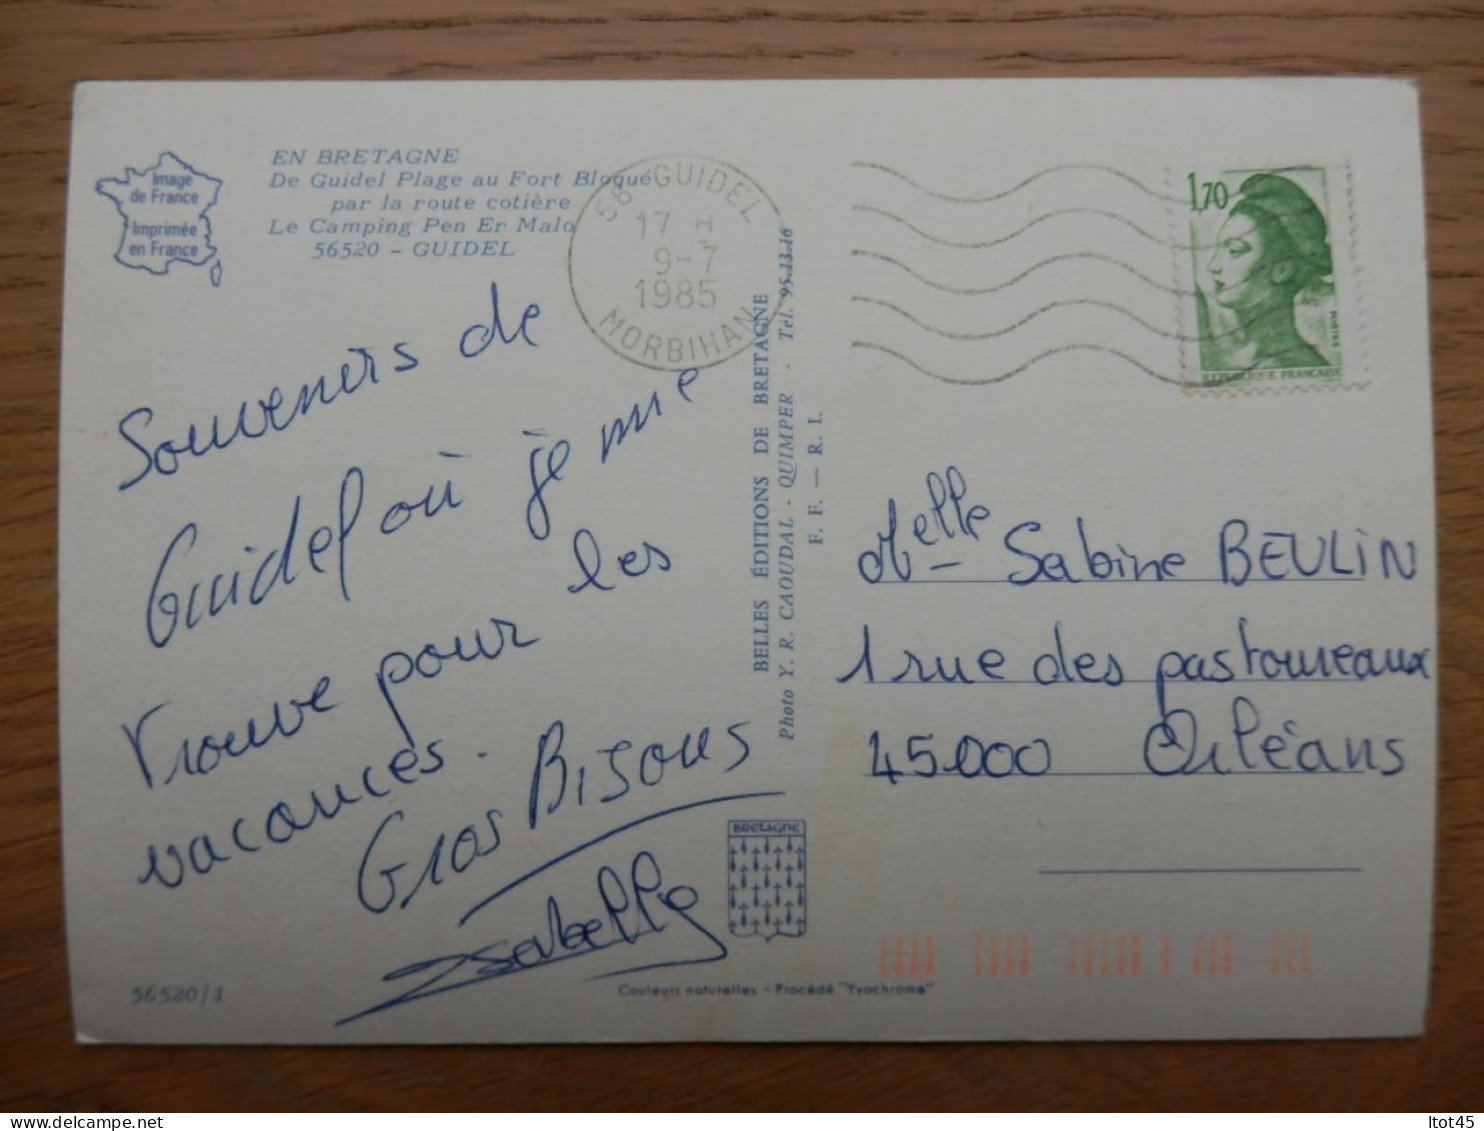 Image
de France
Imprimée
en France
EN BRETAGNE
De Guidel Plage au Fort Bloqué
par la route cotière
Le Camping Pen Er Malo
56520 - GUIDEL
56 GUIDEL
17 H
9-7
1985
MORBIHAN
1,70
POSTES
REPUBLIQUE FRANÇAISE
Souvenirs de
Guidel où je me
trouve pour les
vacances.
Gros Bisous
Isabelle
BELLES ÉDITIONS DE BRETAGNE
Photo Y. R. CAOUDAL - QUIMPER - Tél. 95.13.16
F. F. — R. I.
Melle Sabine BEULIN
1 rue des pastoureaux
45000 Orléans
BRETAGNE
56520/1
Couleurs naturelles - Procédé "Yvochrome"
ltot45